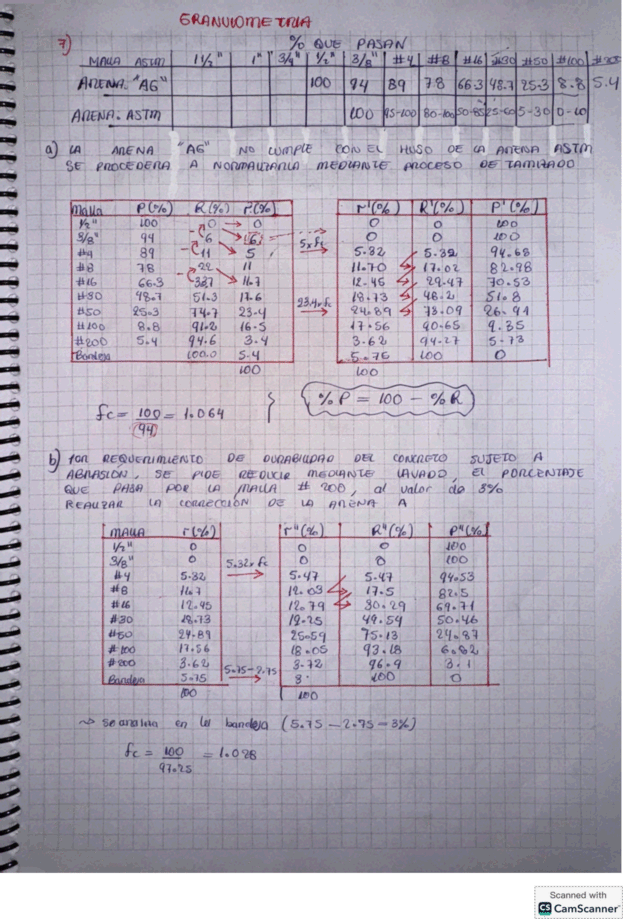 GRANULOMETRIA
7) % QUE PASAN
MALLA ASTM 1 1/2" 1" 3/4" 1/2" 3/8" #4 #8 #16 #30 #50 #100 #200
ARENA "AG" 100 94 89 78 66.3 48.7 25.3 8.8 5.4
ARENA. ASTM 100 95-100 80-100 50-85 25-60 5-30 0-10
a) LA ARENA "AG" NO CUMPLE CON EL HUSO DE LA ARENA ASTM
SE PROCEDERA A NORMALIZARLA MEDIANTE PROCESO DE TAMIZADO
Malla P(%) R(%) r(%) r'(%) R'(%) P'(%)
1/2" 100 0 0 0 0 100
3/8" 94 6 6 0 0 100
#4 89 11 5 5xfc 5.32 5.32 94.68
#8 78 22 11 11.70 17.02 82.98
#16 66.3 33.7 11.7 12.45 29.47 70.53
#30 48.7 51.3 17.6 18.73 48.2 51.8
#50 25.3 74.7 23.4 23.4xfc 24.89 73.09 26.91
#100 8.8 91.2 16.5 17.56 90.65 9.35
#200 5.4 94.6 3.4 3.62 94.27 5.73
Bandeja 100.0 5.4 5.75 100 0
100 100
fc = 100/94 = 1.064 } { %P = 100 - %R
b) POR REQUERIMIENTO DE DURABILIDAD DEL CONCRETO SUJETO A
ABRASIÓN, SE PIDE REDUCIR MEDIANTE LAVADO, EL PORCENTAJE
QUE PASA POR LA MALLA # 200, al valor de 3%
REALIZAR LA CORRECCIÓN DE LA ARENA A
MALLA r(%) r"(%) R"(%) P"(%)
1/2" 0 0 0 100
3/8" 0 5.32xfc 0 0 100
#4 5.32 5.47 5.47 94.53
#8 11.7 12.03 17.5 82.5
#16 12.45 12.79 30.29 69.71
#30 18.73 19.25 49.54 50.46
#50 24.89 25.59 75.13 24.87
#100 17.56 18.05 93.18 6.82
#200 3.62 5.75-2.75 3.72 96.9 3.1
Bandeja 5.75 3. 100 0
100 100
~> se analiza en la bandeja (5.75 - 2.75 = 3%)
fc = 100/97.25 = 1.028
Scanned with
CS CamScanner